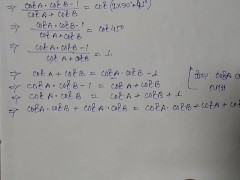 ⇒ cotA·cotB-1 / cotA+cotB = cot(2×90°+45°)
⇒ cotA·cotB-1 / cotA+cotB = cot45°
⇒ cotA·cotB-1 / cotA+cotB = 1
⇒ cotA+cotB = cotA·cotB-1
⇒ cotA·cotB-1 = cotA+cotB
⇒ cotA·cotB = cotA+cotB+1
⇒ cotA+cotB+cotA·cotB = cotA+cotB+cotA+cot